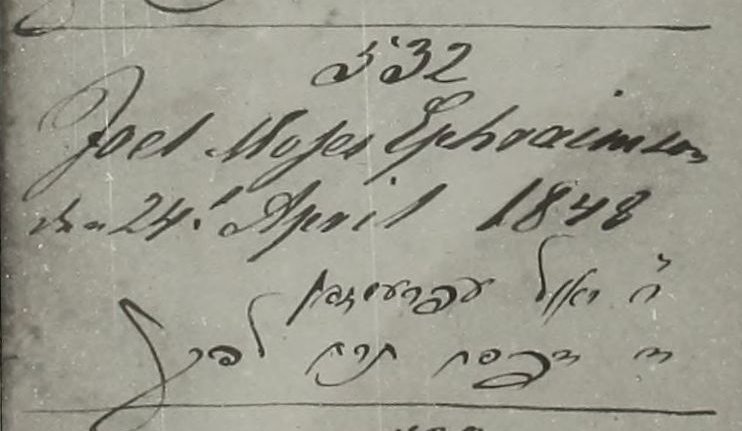 532
Joel Moses Ephraimson
den 24' April 1848
ר' יואל עפרעימזאן
דפסח תרח לפק